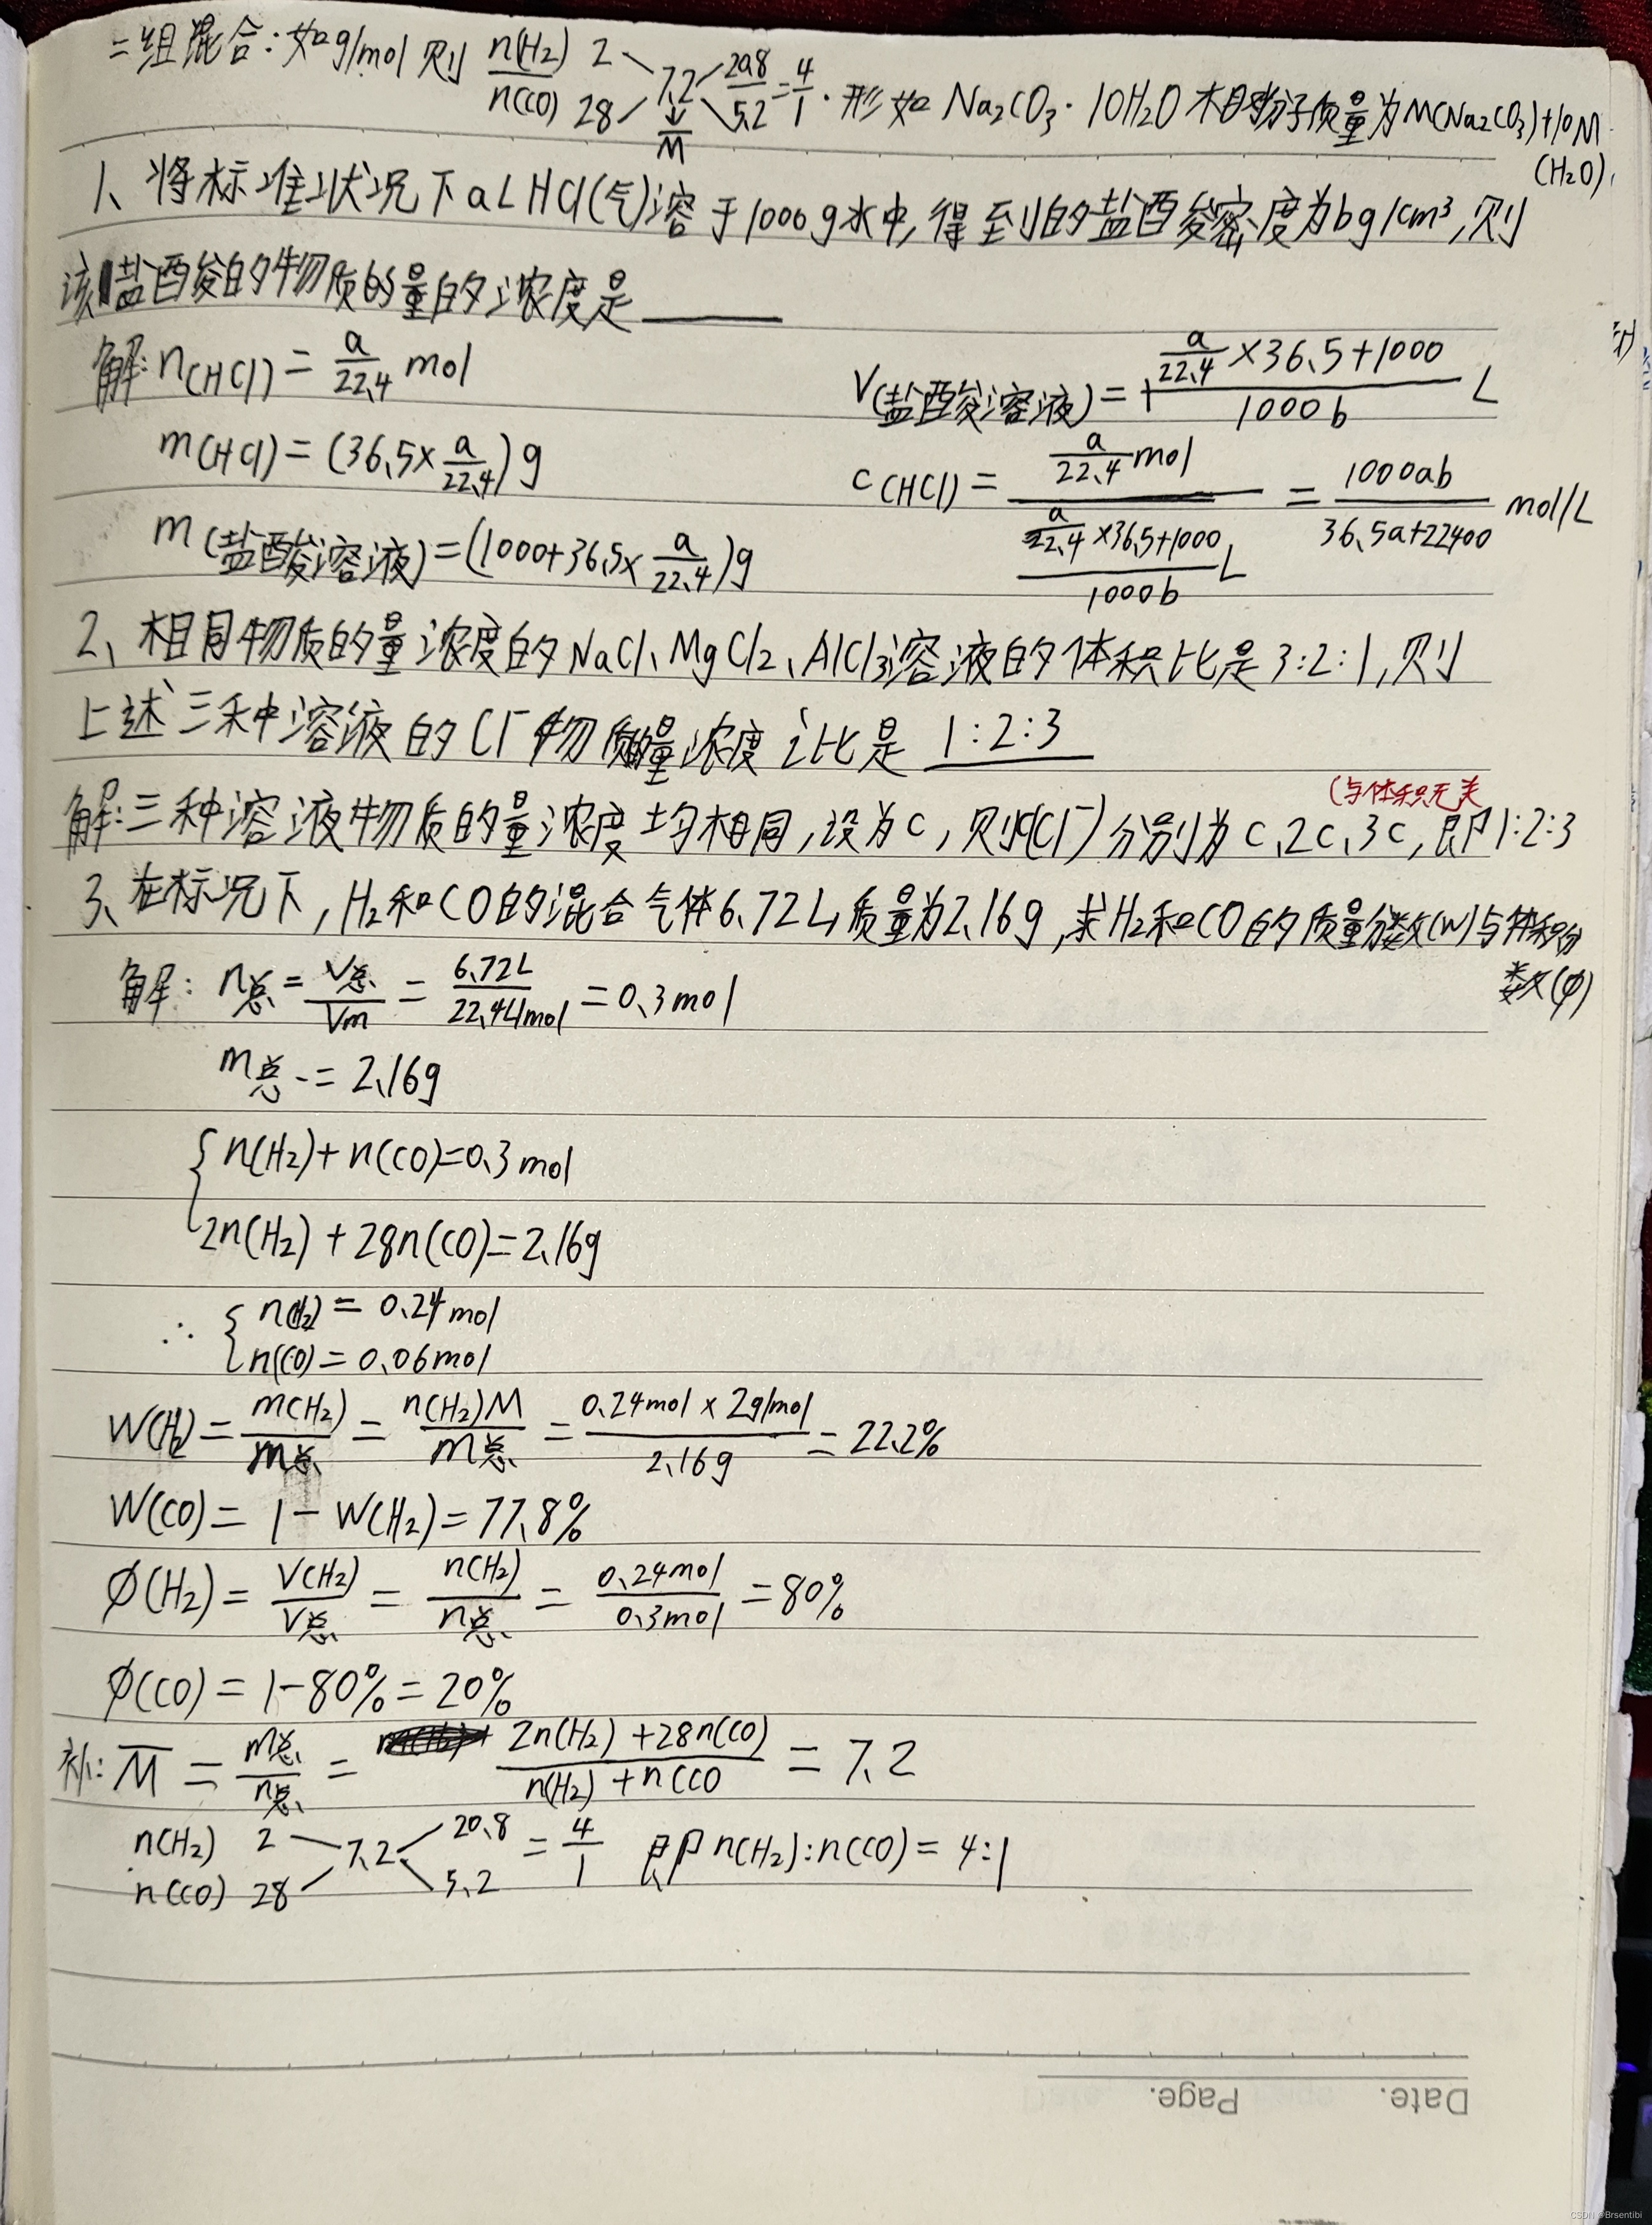 二组混合:如g/mol 则 n(H₂)/n(CO) 2 28 7.2 20.8/5.2=4/1. 形如 Na₂CO₃·10H₂O 相对分子质量为M(Na₂CO₃)+10M
M̅
(H₂O).
1、将标准状况下aLHCl(气)溶于1000g水中,得到的盐酸密度为bg/cm³,则
该盐酸的物质的量的浓度是____
解:n(HCl)=a/22.4 mol
m(HCl)=(36.5×a/22.4)g
m(盐酸溶液)=(1000+36.5×a/22.4)g
V(盐酸溶液)=(a/22.4×36.5+1000)/1000b L
c(HCl)=(a/22.4 mol)/((a/22.4×36.5+1000)/1000b L)=1000ab/(36.5a+22400) mol/L
2、相同物质的量浓度的NaCl、MgCl₂、AlCl₃溶液的体积比是3:2:1,则
上述三种溶液的Cl⁻物质的量浓度之比是 1:2:3
(与体积无关
解:三种溶液物质的量浓度均相同,设为c,则c(Cl⁻)分别为c、2c、3c,即1:2:3
3、在标况下,H₂和CO的混合气体6.72L,质量为2.16g,求H₂和CO的质量分数(w)与体积分
数(φ)
解:n总=V总/Vm=6.72L/22.4L/mol=0.3mol
m总=2.16g
{n(H₂)+n(CO)=0.3mol
2n(H₂)+28n(CO)=2.16g
∴ {n(H₂)=0.24mol
n(CO)=0.06mol
W(H₂)=m(H₂)/m总=n(H₂)M/m总=0.24mol×2g/mol/2.16g=22.2%
W(CO)=1-W(H₂)=77.8%
φ(H₂)=V(H₂)/V总=n(H₂)/n总=0.24mol/0.3mol=80%
φ(CO)=1-80%=20%
补:M̅=m总/n总=2n(H₂)+28n(CO)/n(H₂)+n(CO=7.2
n(H₂) 2 7.2 20.8 =4/1 即n(H₂):n(CO)=4:1
n(CO) 28 5.2
Date. Page.
CSDN @Brsentibi